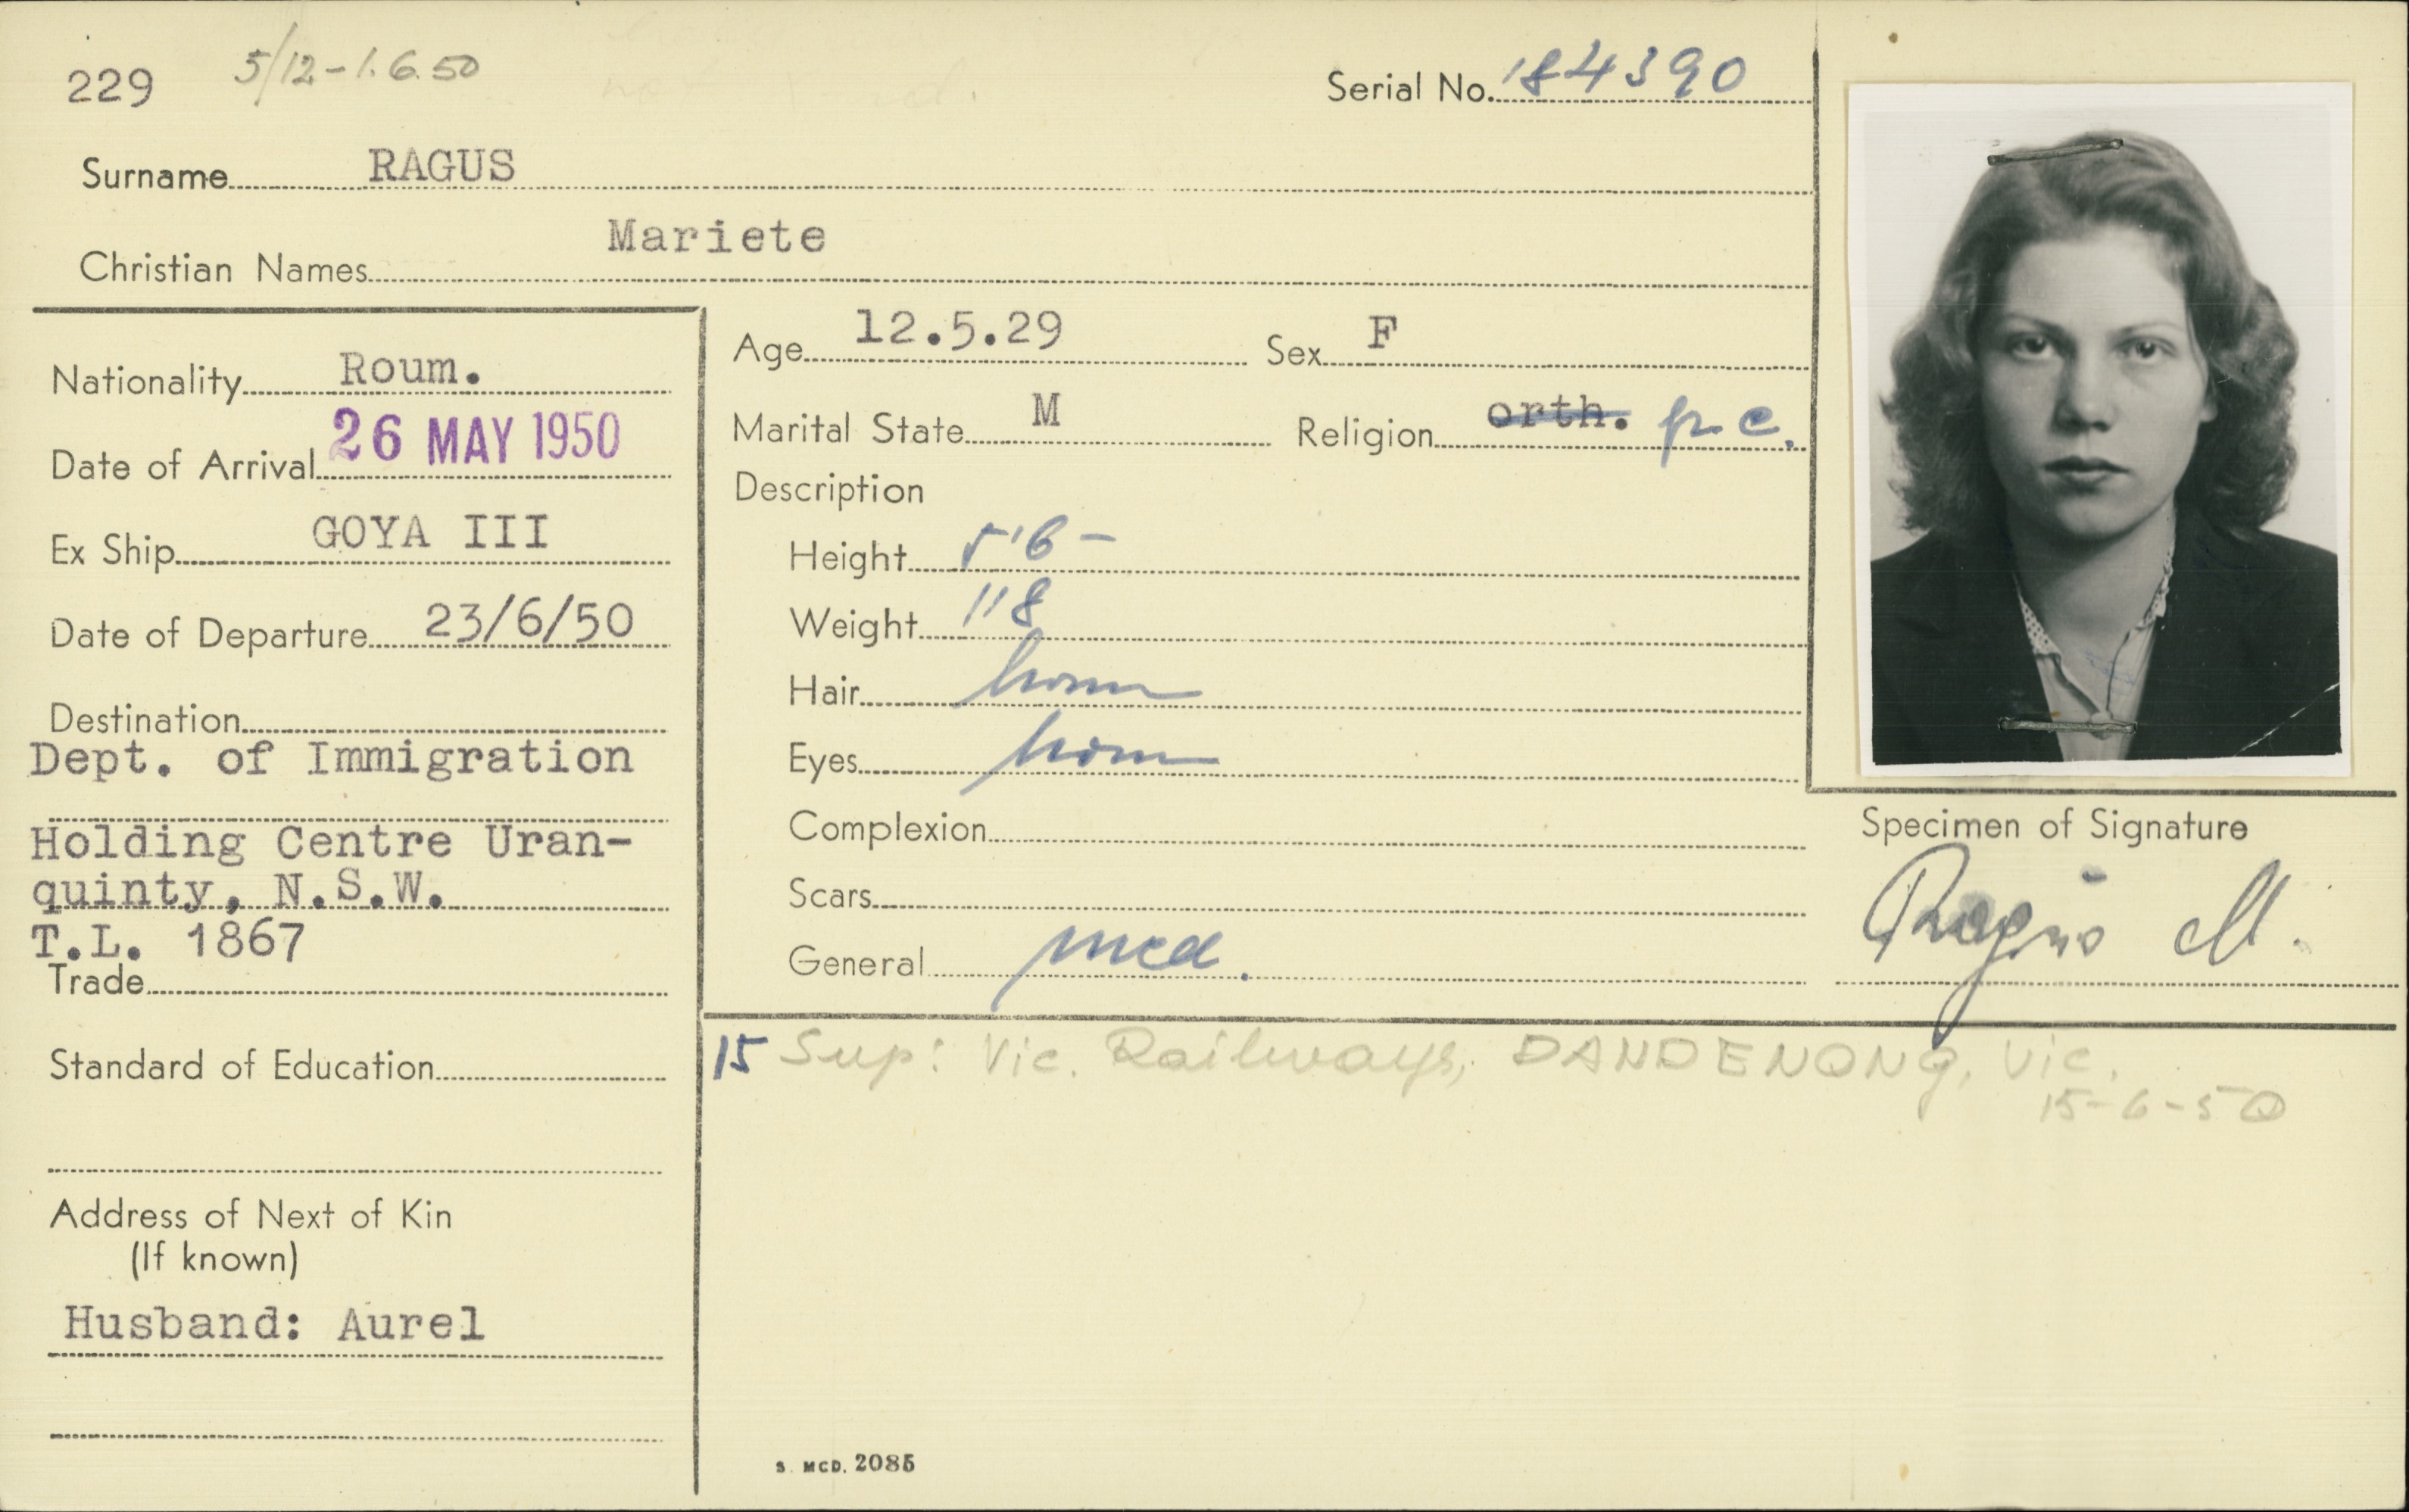 229 5/12-1.6.50
Serial No. 184390
Surname RAGUS
Christian Names Mariete
Nationality Roum.
Date of Arrival 26 MAY 1950
Ex Ship GOYA III
Date of Departure 23/6/50
Destination
Dept. of Immigration
Holding Centre Uran-
quinty, N.S.W.
T.L. 1867
Trade
Standard of Education
Address of Next of Kin
(If known)
Husband: Aurel
Age 12.5.29 Sex F
Marital State M Religion orth. r.c.
Description
Height 5'6-
Weight 118
Hair brown
Eyes brown
Complexion
Scars
General med.
Specimen of Signature
Ragus M.
15 Sup: Vic. Railways, DANDENONG, Vic.
15-6-50
S. MCD. 2085